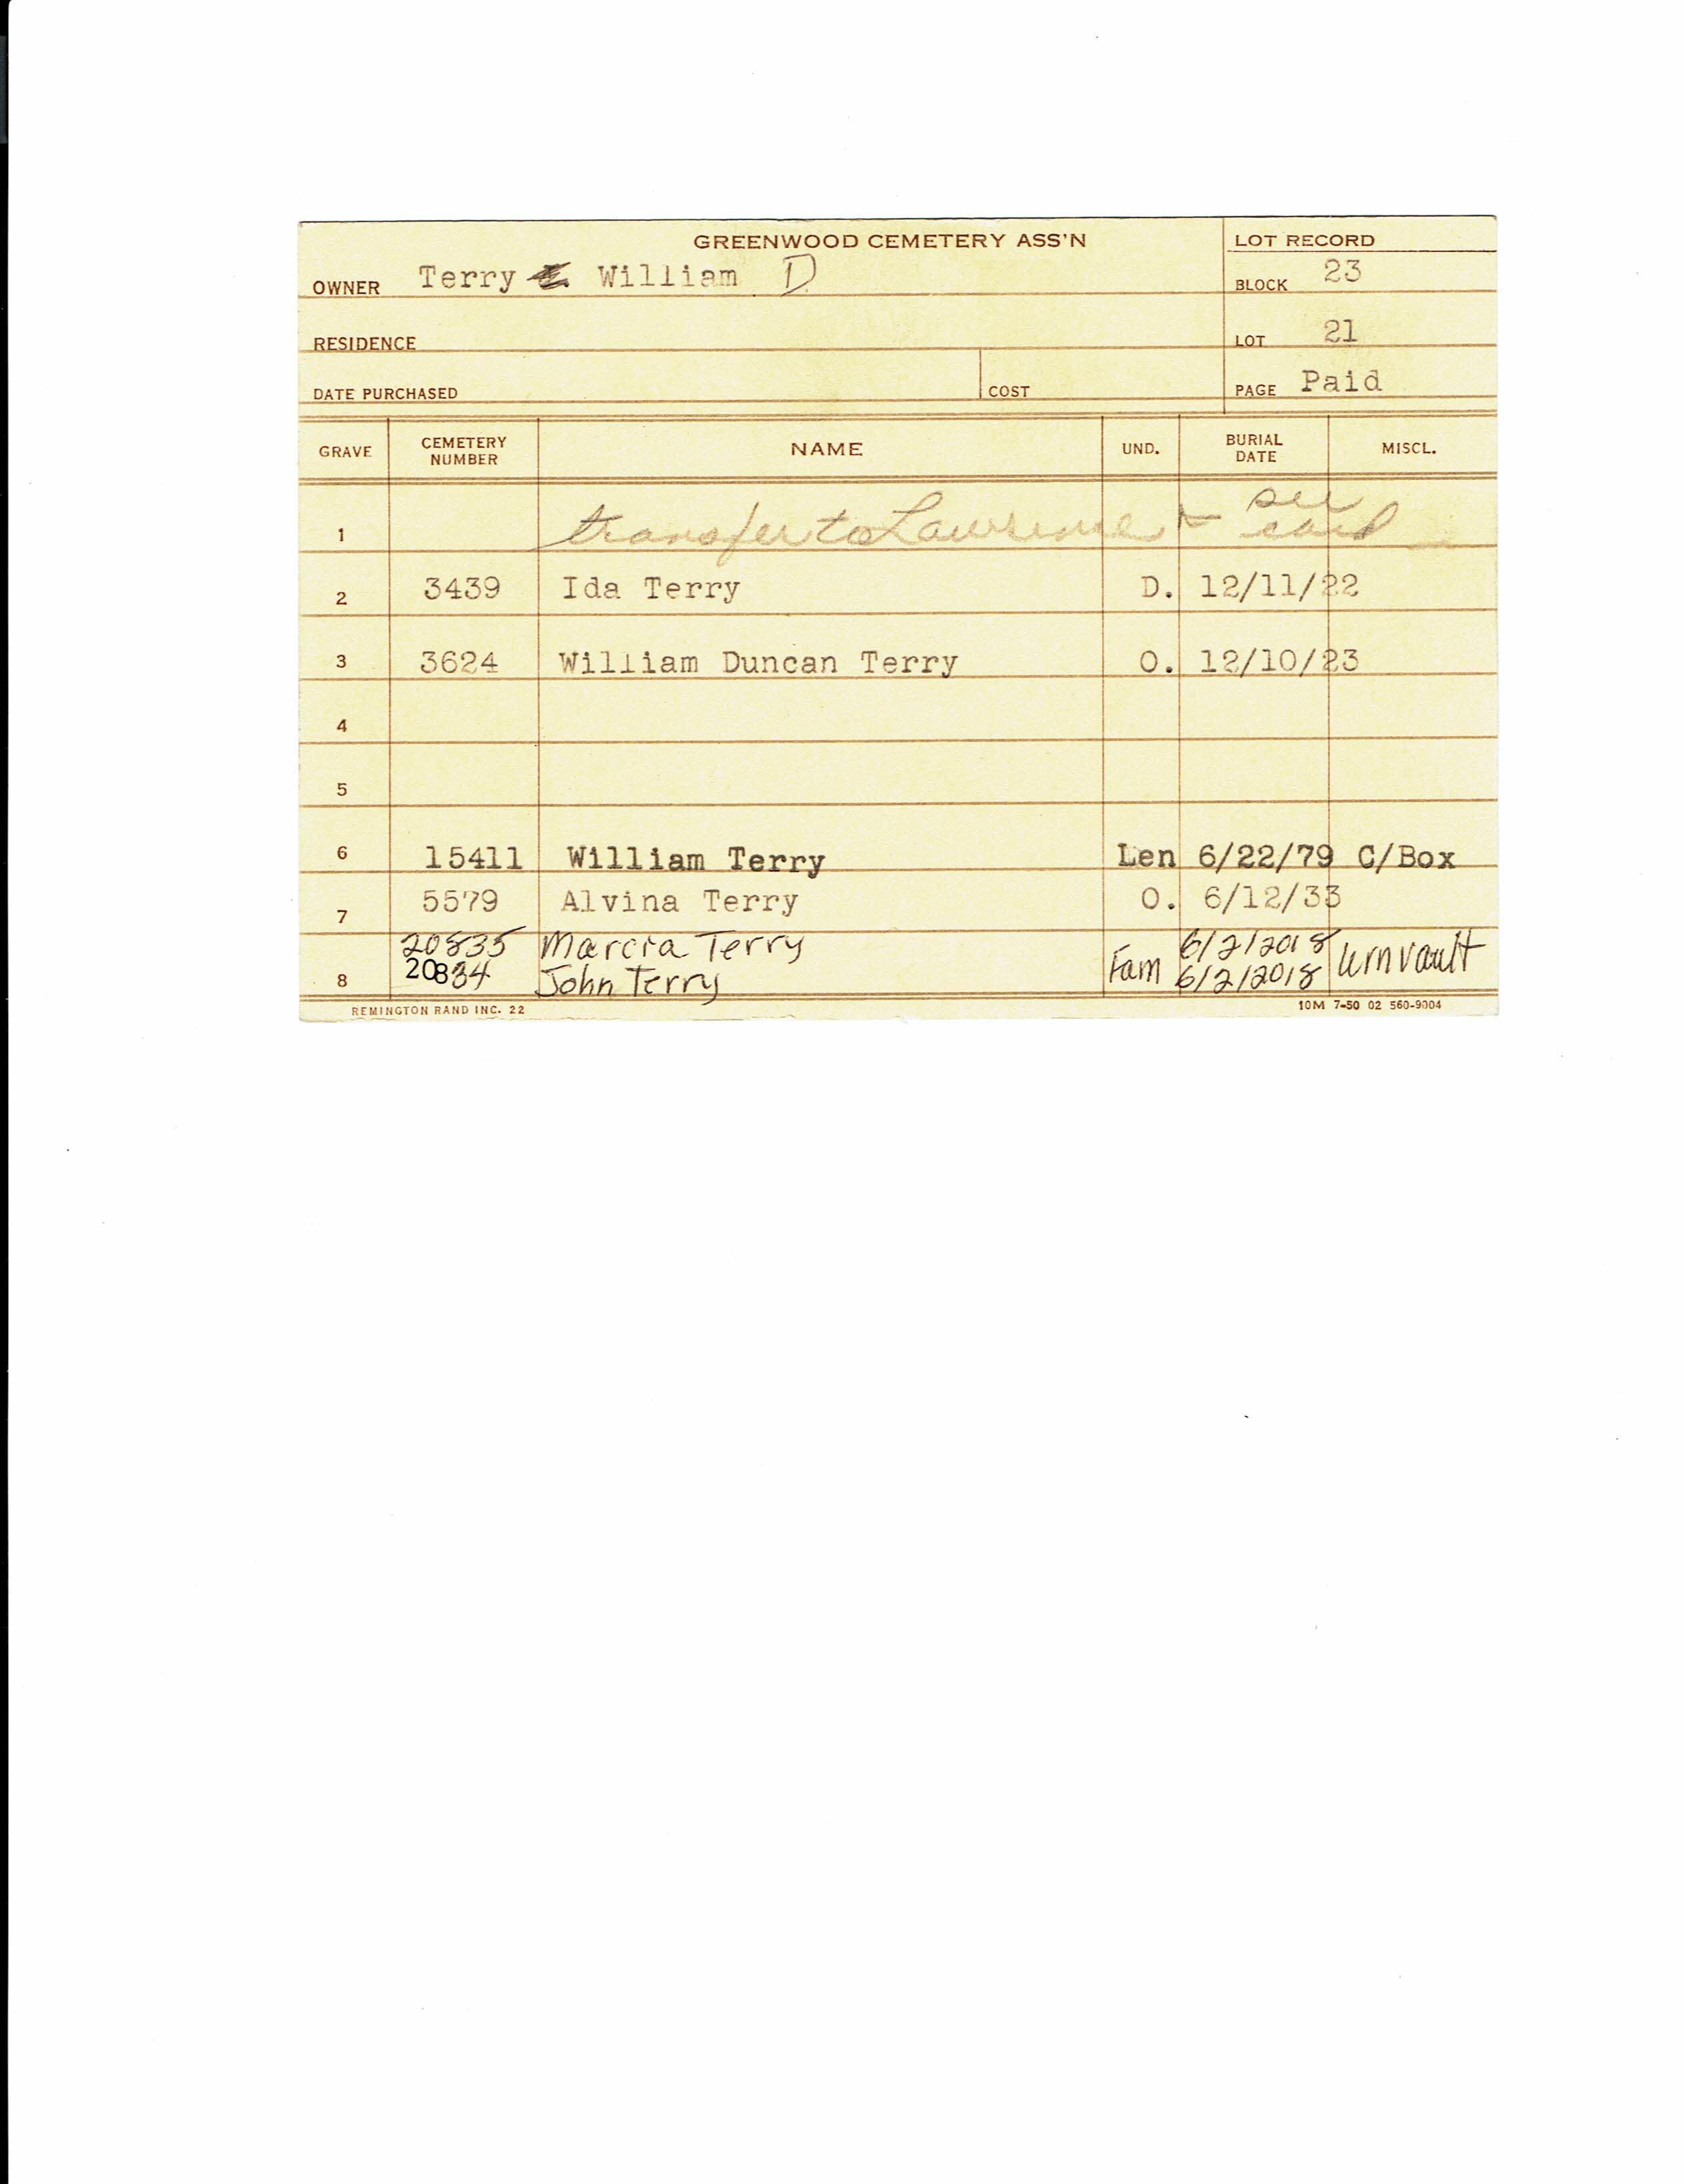 GREENWOOD CEMETERY ASS'N
LOT RECORD
OWNER Terry William D.
BLOCK 23
RESIDENCE
LOT 21
DATE PURCHASED
COST
PAGE Paid
GRAVE CEMETERY NUMBER NAME UND. BURIAL DATE MISCL.
1 transfer to Lawrence - see card
2 3439 Ida Terry D. 12/11/22
3 3624 William Duncan Terry O. 12/10/23
4
5
6 15411 William Terry Len 6/22/79 C/Box
7 5579 Alvina Terry O. 6/12/33
20835 Marcia Terry 6/2/2018
8 20834 John Terry Fam 6/2/2018 Urn vault
REMINGTON RAND INC. 22
10M 7-50 02 560-9004